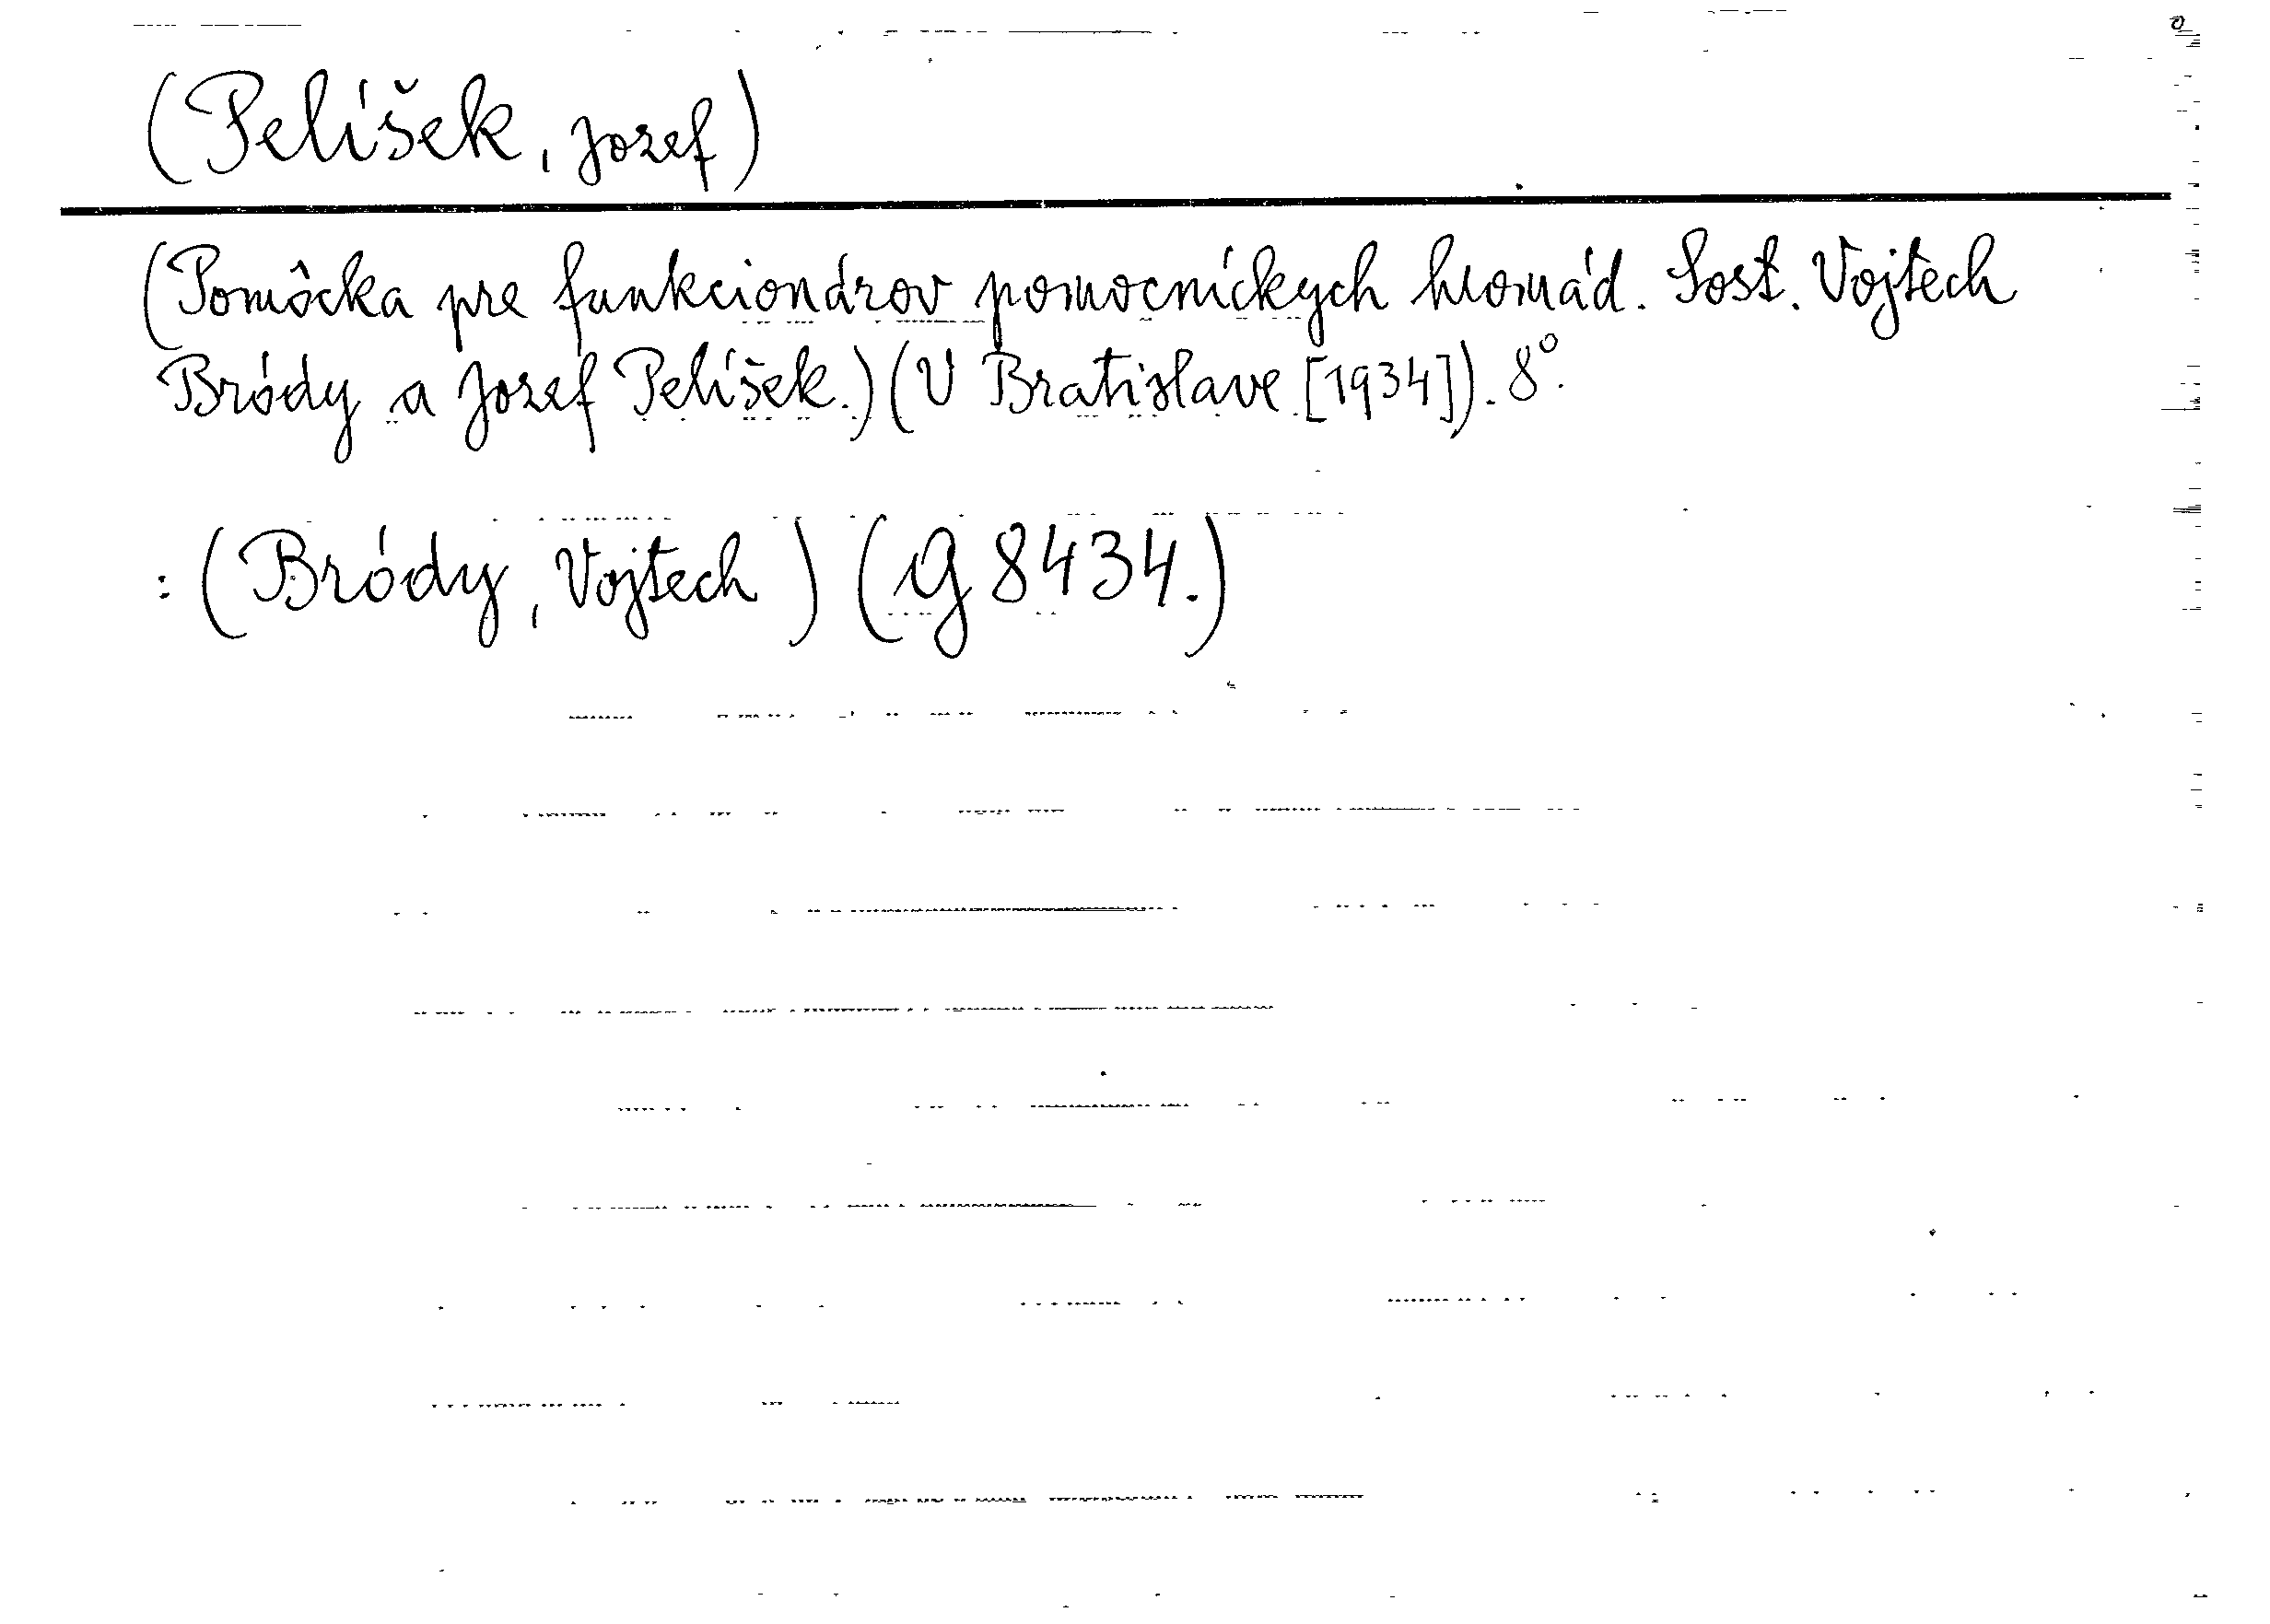 (Pelíšek, Jozef)
(Pomôcka pre funkcionárov pomocníckych hromád. Sost. Vojtech
Bródy a Jozef Pelíšek.) (V Bratislave [1934]). 8°.
: (Bródy, Vojtech) (G 8434.)